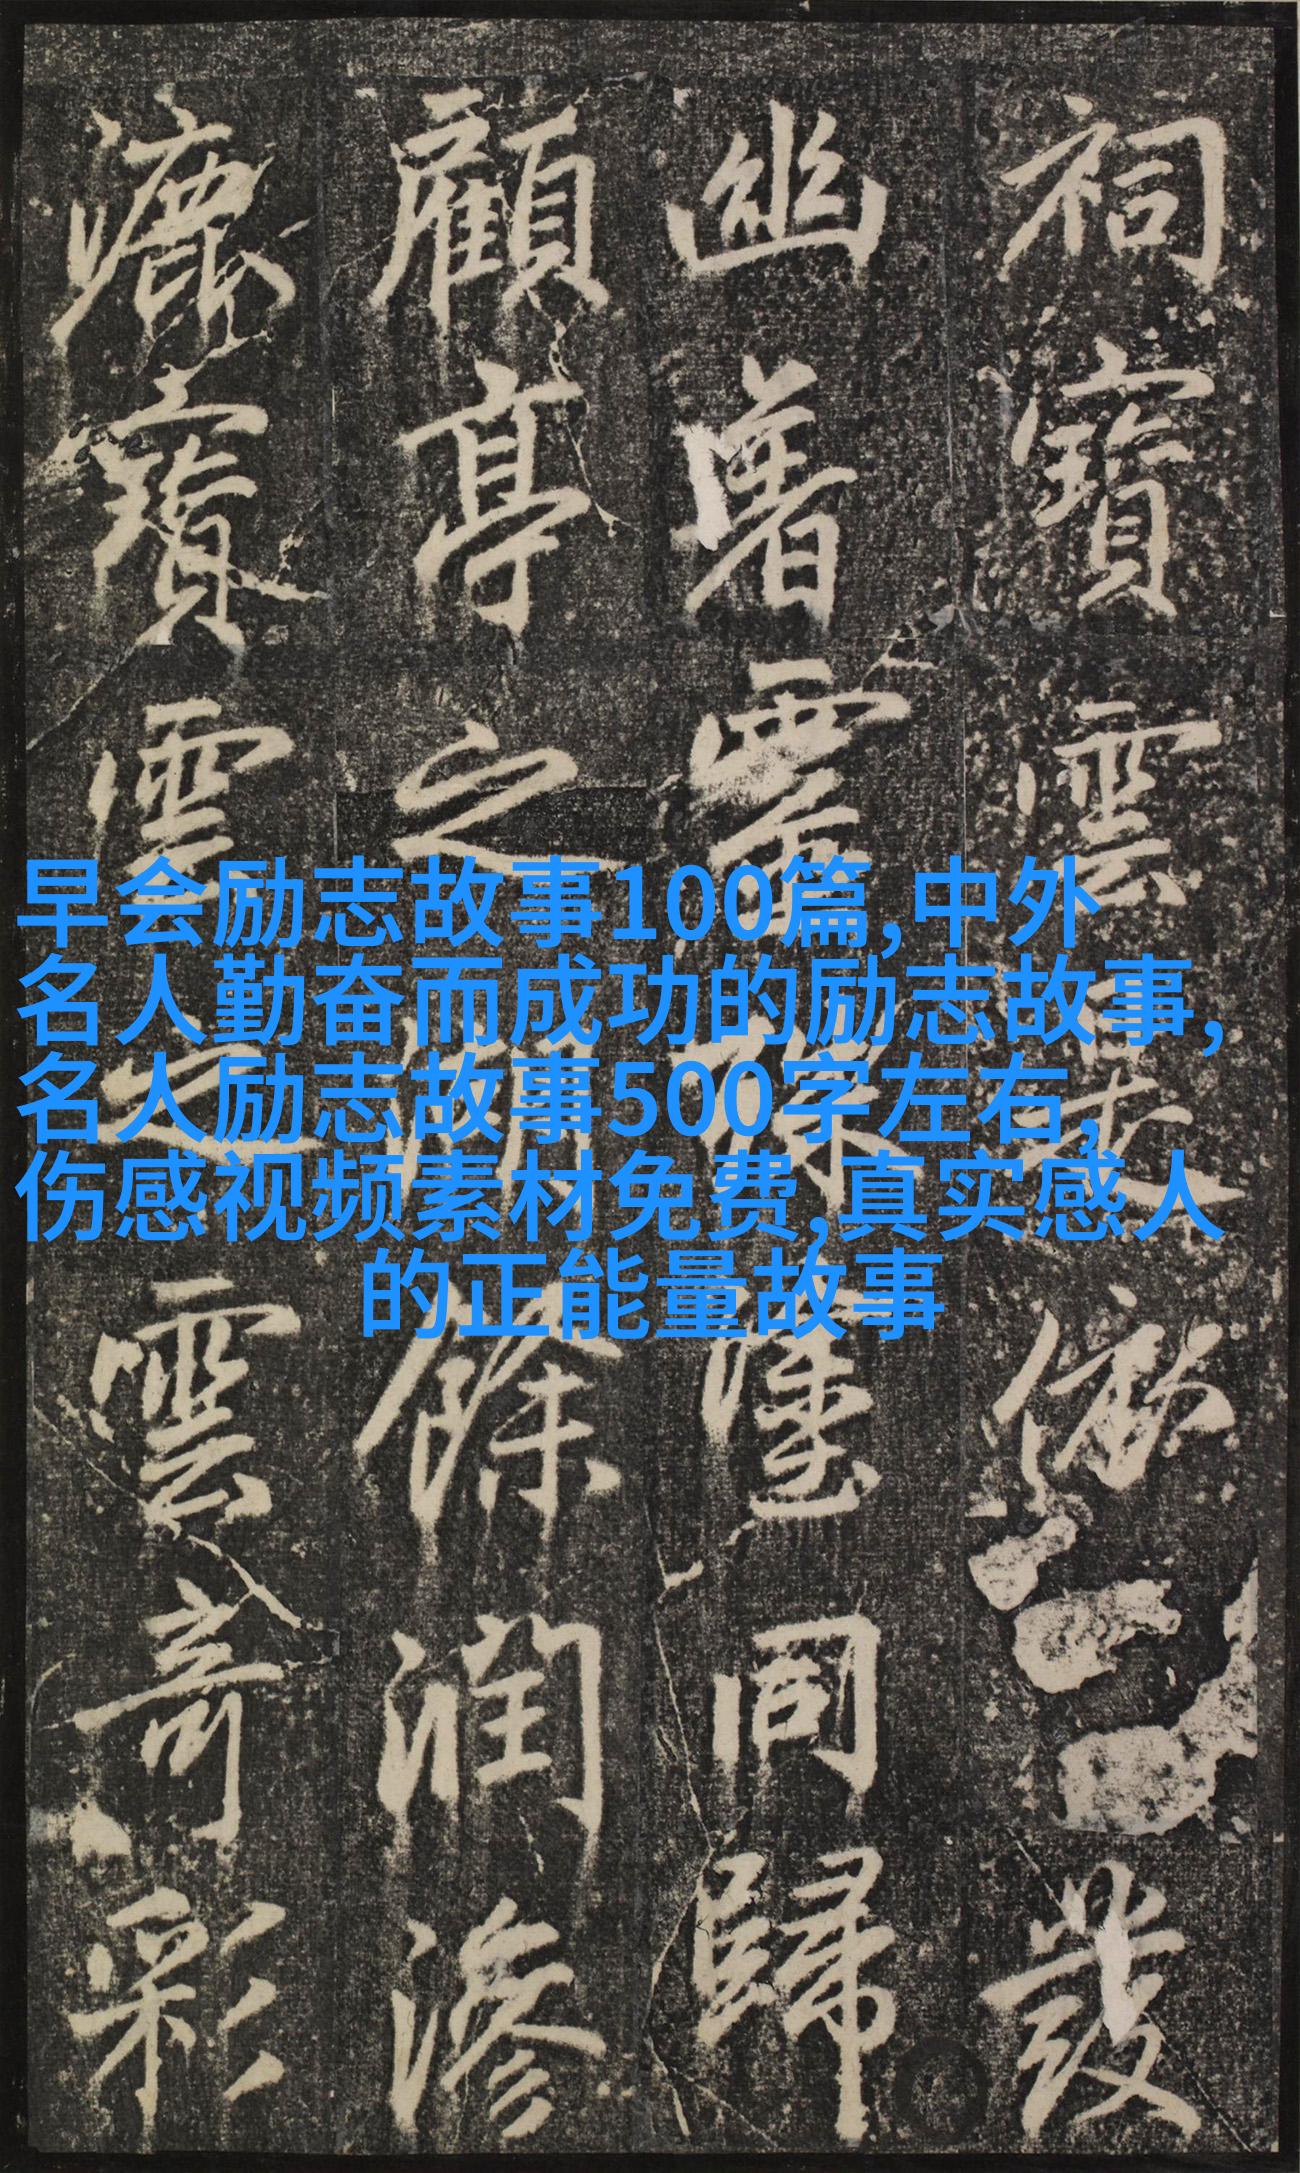 早会励志故事100篇,中外
名人勤奋而成功的励志故事,
名人励志故事500字左右,
伤感视频素材免费,真实感人
的正能量故事
祠寶雲發
幽同歸
顧亭之餘潤滲
漉寶雲之雲奇彩